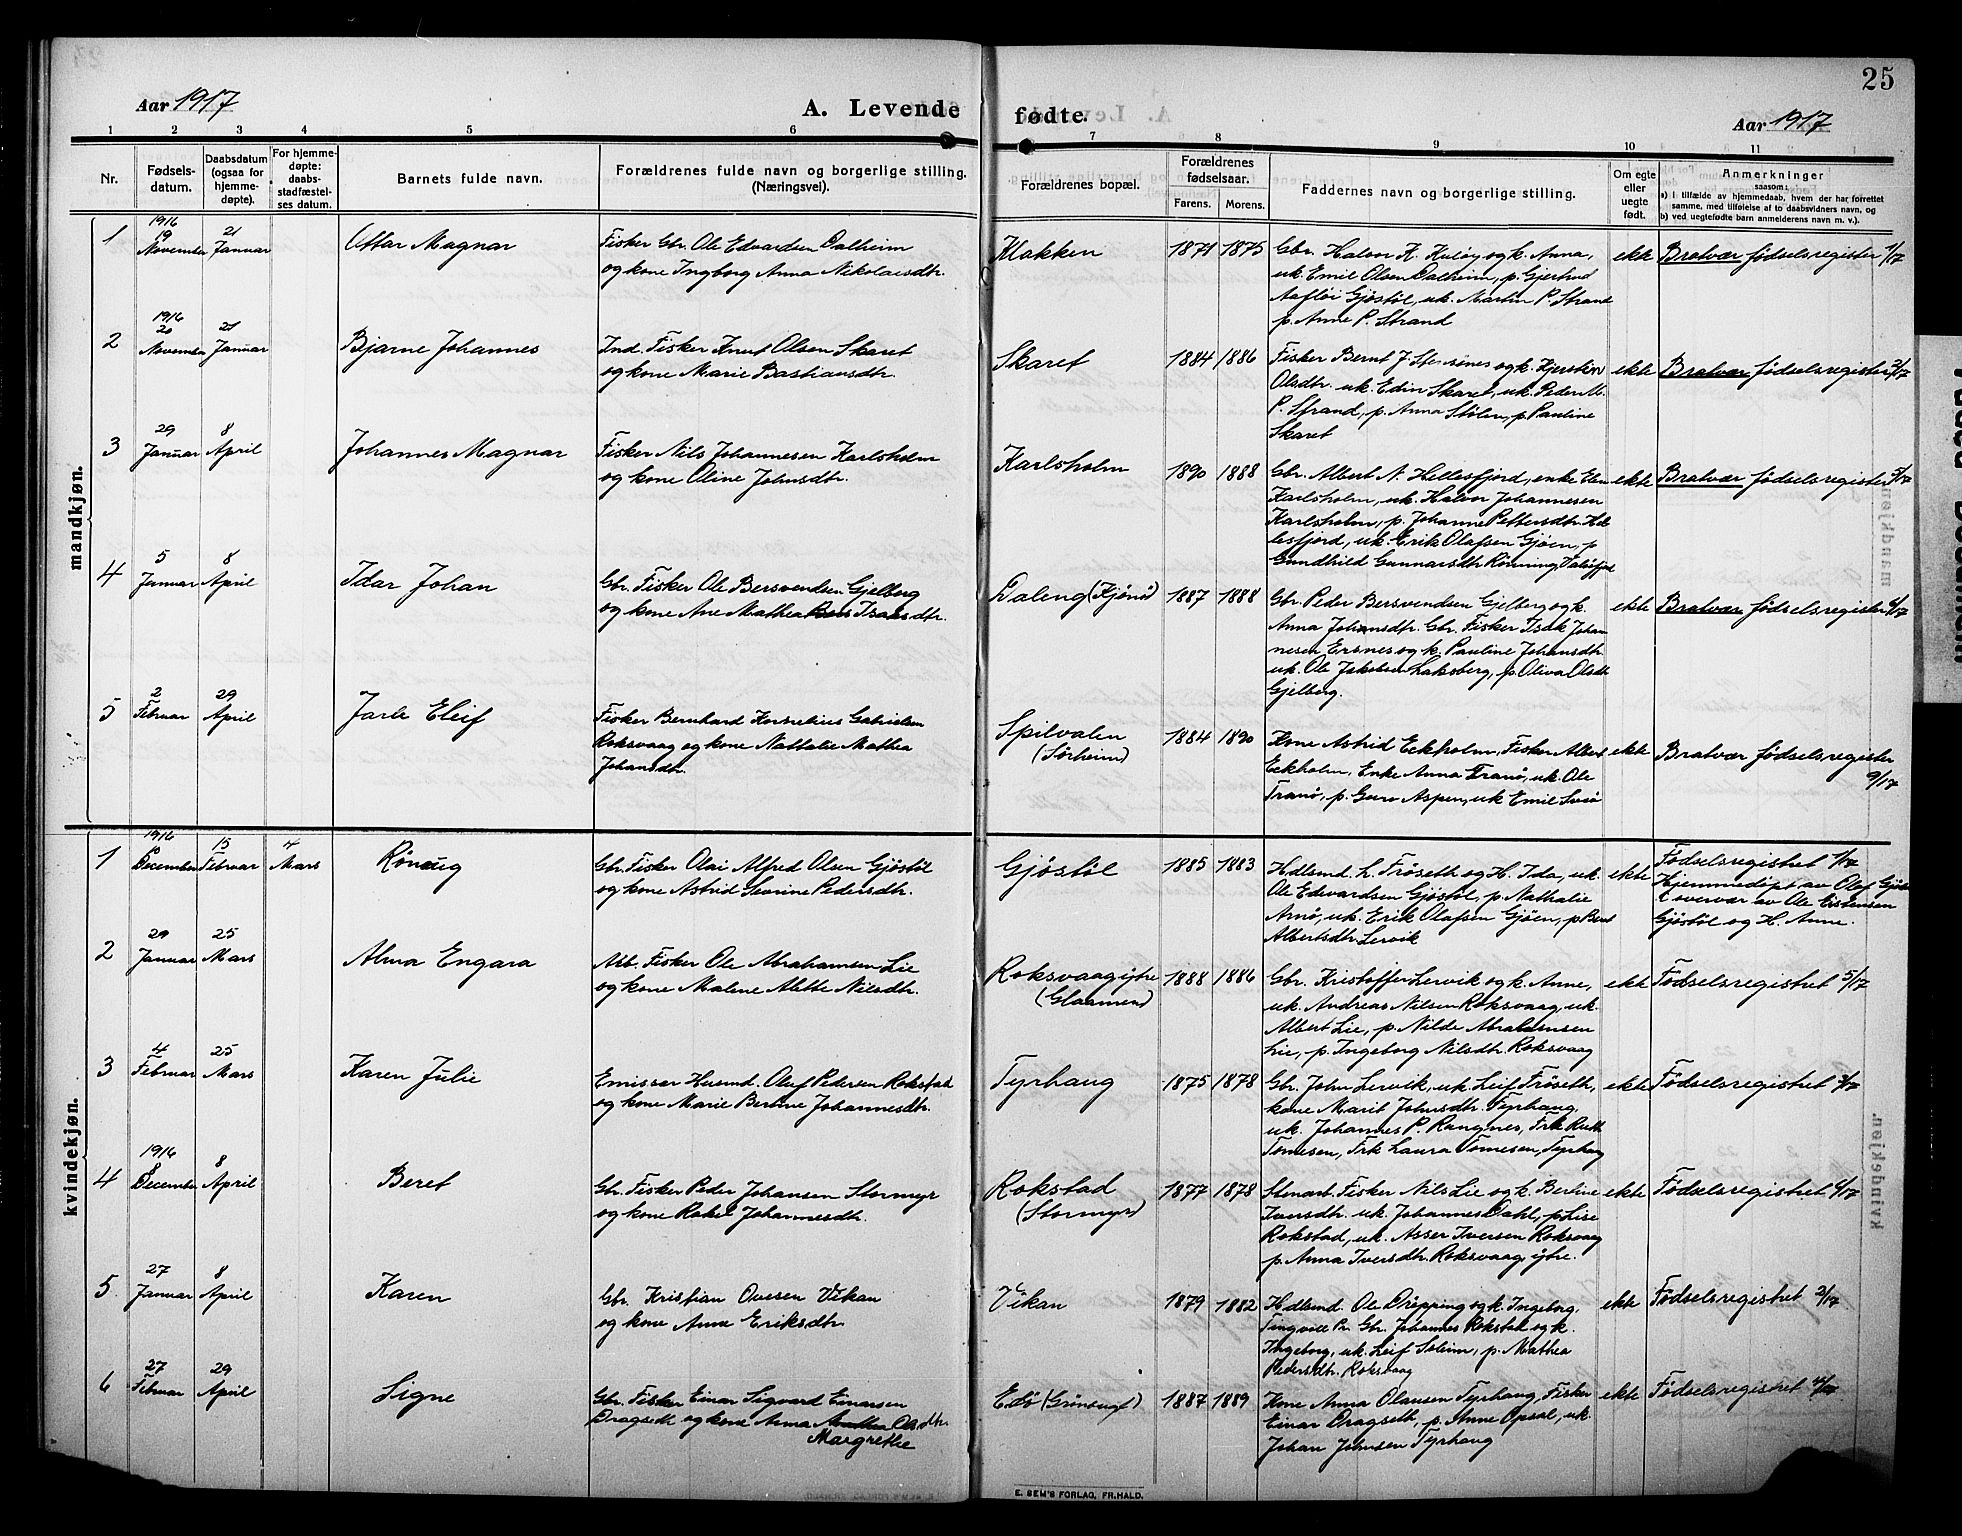 25
Aar 1917
A. Levende
fødte.
Aar 1917
1 2 3 4 5 6 7 8 9 10 11
Nr.
Fødsels-
datum.
Daabsdatum
(ogsaa for
hjemme-
døpte).
For hjemme-
døpte:
daabs-
stadfæstel-
ses datum.
Barnets fulde navn.
Forældrenes fulde navn og borgerlige stilling.
(Næringsvei).
Forældrenes bopæl.
Forældrenes
fødselsaar.
Farens. Morens.
Faddernes navn og borgerlige stilling.
Om egte
eller
uegte
født.
Anmerkninger
saasom:
a) I tilfælde av hjemmedaab, hvem der har forrettet
samme, med tilføielse af to daabsvidners navn, og
b) ved uegtefødte barn anmelderens navn m. v.).
mandkjøn.
1
1916
19
November
21
Januar
Magnar
Fisker Gbr. Ole Edvardsen Dalheim
og kone Ingborg Anna Nikolaisdtr.
Klakken
1871 1875
Gbr. Halvor K. Kuløy og k. Anna,
uk. Emil Olsen Dalheim, p. Gjertrud
Gjøstøl, uk. Martin P. Strand
p. Anne P. Strand
ekte
Bratvær fødselsregister 1/17
2
1916
20
November
21
Januar
Bjarne Johannes
Ind. Fisker Knut Olsen Skaret
og kone Marie Bastiansdtr.
Skaret
1884 1886
Fisker Bernt J. og k. Kjersten
Olsdtr. uk. Edin Skaret, uk. Peder M.
P. Strand, p. Anna Stølen, p. Pauline
Skaret
ekte
Bratvær fødselsregister 2/17
3
29
Januar
8
April
Johannes Magnar
Fisker Nils Johannesen Karlsholm
og kone Oline Johnsdtr.
Karlsholm
1890 1888
Gbr. Albert N. Hellesfjord, enke Elen
Karlsholm, uk. Halvor Johannesen
Karlsholm, p. Johanne Pettersdtr. Hel-
lesfjord, uk. Erik Olafsen Gjøen, p.
Gundhild Gunnarsdtr. Rønning, Valsøfjord
ekte
Bratvær fødselsregister 5/17
4
5
Januar
8
April
Idar Johan
Gbr. Fisker Ole Bersvendsen Gjelberg
og kone Ane Mathea Isaksdtr.
Daleng
1887 1888
Gbr. Peder Bersvendsen Gjelberg og k.
Anna Johansdtr. Gbr. Fisker Isak Johan
nesen Ersnes og k. Pauline Johansdtr
uk. Ole Jakobsen Laksberg, p. Oliva Olsdtr
Gjelberg.
ekte
Bratvær fødselsregister 6/17
5
2
Februar
29
April
Jarle Eleif
Fisker Bernhard Kornelius Gabrielsen
Roksvaag og kone Nathalie Mathea
Johansdtr.
Spilvalen
(Sørheim)
1884 1890
Kone Astrid Eckholm, Fisker Albert
Eckholm, Enke Anna Tranø, uk. Ole
Tranø, p. Guro Aspen, uk Emil
ekte
Bratvær fødselsregister
9/17
kvindekjøn.
1
1916
December
15
Februar
4
Mars
Rønaug
Gbr. Fisker Olai Alfred Olsen Gjøstøl
og kone Astrid Severine Pedersdtr.
Gjøstøl
1885 1883
Hdlsmd. L. Frøseth og H. Ida, uk.
Ole Edevardsen Gjøstøl, p. Nathalie
Arnø, uk. Erik Olafsen Gjøen, p.
Albertsdtr. Lervik
ekte
Fødselsregistret 1/17
Hjemmedøpt av Olaf Gjøen
i overvær av Ole Eistensen
Gjøstøl og H. Anne.
2
29
Januar
25
Mars
Alma Engara
Arb. Fisker Ole Abrahamsen Lie
og kone Malene Alette Nilsdtr.
Roksvaag ytre
(Glaamen)
1888 1886
Gbr. Kristoffer Lervik og k. Anne,
uk. Andreas Nilsen Roksvaag, uk.
Albert Lie, p. Nilde Abrahamsen
Lie, p. Ingeborg Nilsdtr. Roksvaag
ekte
Fødselsregistret 5/17
3
4
Februar
25
Mars
Karen Julie
Emissær Olaf Pedersen Rokstad
og kone Marie Berline Johannesdtr.
Tyrhaug
1875 1878
Gbr. John Lervik, uk. Leif Frøseth,
kone Marit Johnsdtr. Tyrhaug,
uk. Johannes P. Rangnes, Frk Ruth
Tømesen, Frk Laura Tømesen, Tyrhaug
ekte
Fødselsregistret 3/17
4
1916
8
December
8
April
Beret
Gbr. Fisker Peder Johansen Stormyr
og kone Rakel Johannesdtr.
Rokstad
(Stormyr)
1877 1878
Fisker Nils Lie og k. Berline
Iversdtr. uk. Johannes Dahl, p. Lise
Rokstad, uk. Asser Iversen Roksvaag
p. Anna Iversdtr. Roksvaag, ytre.
ekte
Fødselsregistret 6/17
5.
27
Januar
8
April
Karen
Gbr. Kristian Ovesen Vikan
og kone Anne Eriksdtr.
Vikan
1879 1882
Hdlsmd. Ole Drøpping og k. Ingeborg,
Tingvoll Pr. Gbr. Johannes Rokstad og k.
Ingeborg, uk. Leif Solem, p. Mathea
Pedersdtr. Roksvaag
ekte
Fødselsregistret 2/17
6
27
Februar
29
April
Signe
Gbr. Fisker Einar Sigvard Einarsen
Dragseth og kone Anna Mathea Olsdtr.
Margrethe
Edø
1887 1889
Kone Anna Olausen Tyrhaug, Fisker
Einar Dragseth, p. Anne Opsal, uk.
Johan Johnsen Tyrhaug
ekte
Fødselsregistret
E. SEM'S FORLAG, FR.HALD.